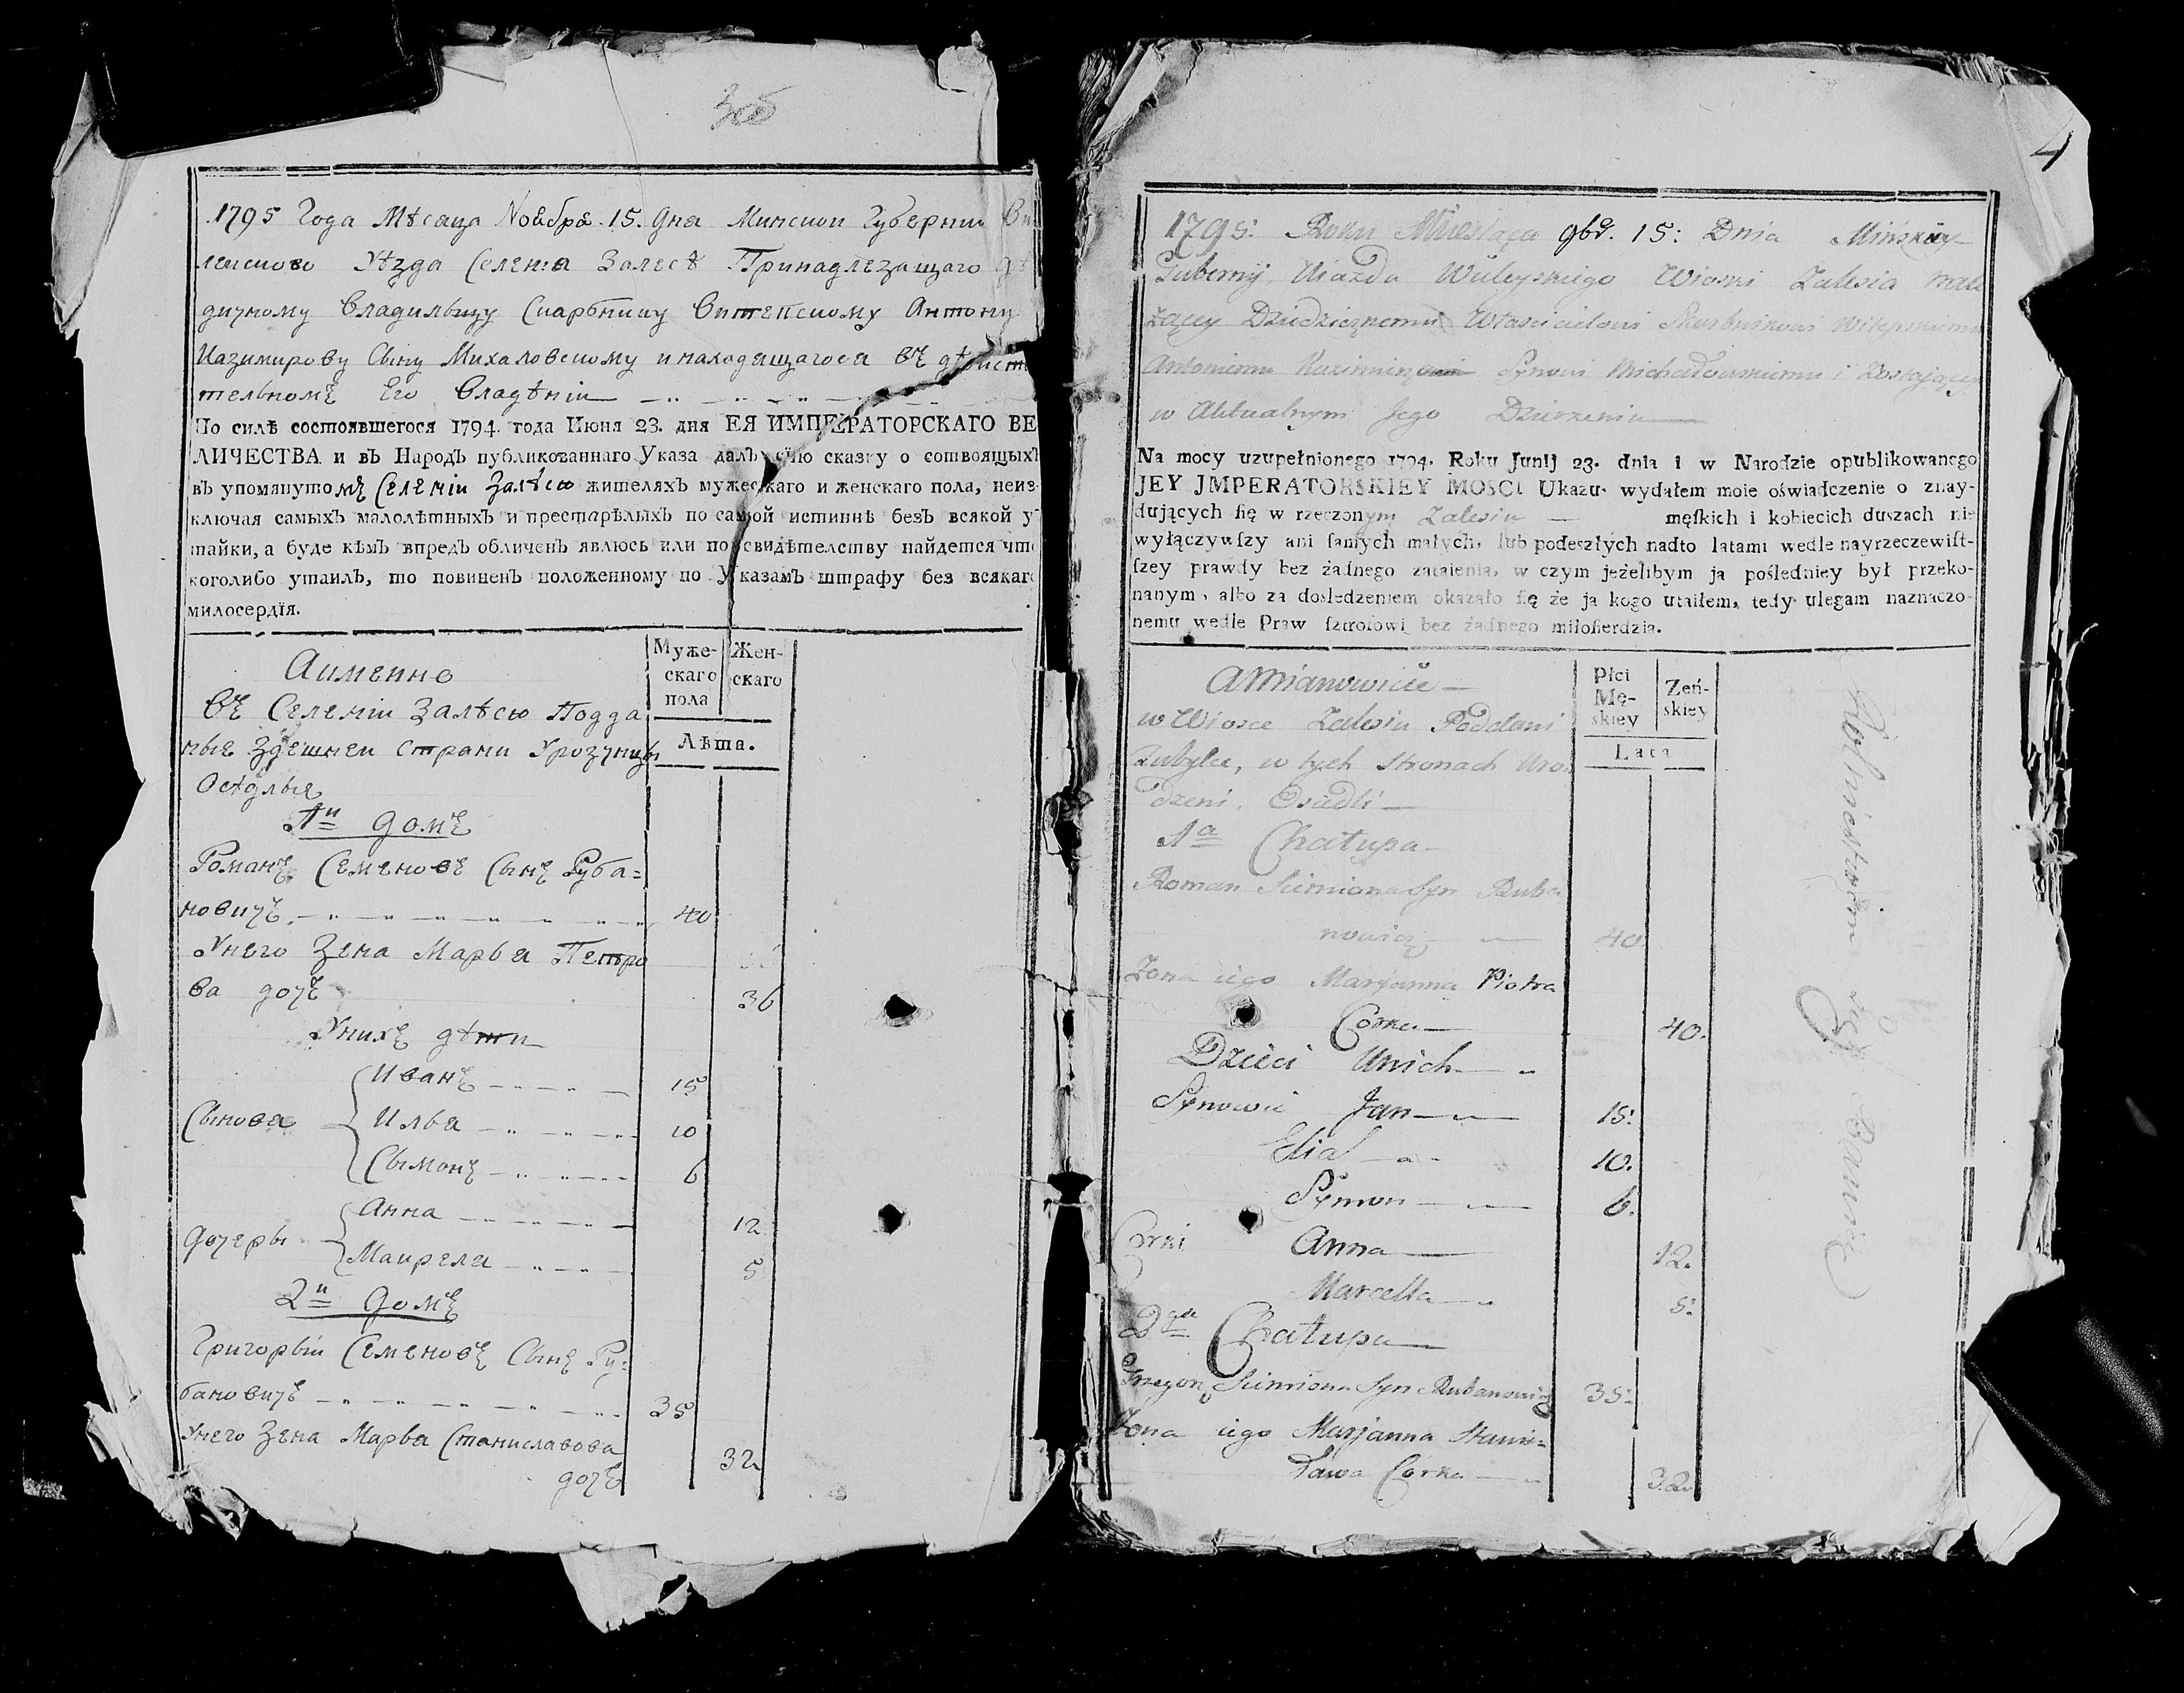 1795 Года Мѣсаца Ноабра. 15. дна Минскои Губернии Ви
леискова Уѣзда Селениа Залесѣ Принадлезащаго
дичному Владильцу Скарбнику Витепскому Антону
Казимирову Сыну Михаловскому и находащагоса въ дѣист
тельномъ Его Владѣнїи
По силѣ состоявшегося 1794. года Июня 23. дня ЕЯ ИМПЕРАТОРСКАГО ВЕ
ЛИЧЕСТВА и въ Народъ публикованнаго Указа далъ сїю сказку о сотвоящыхъ
въ упомянутомъ Селенїи Залѣсю жителяхъ мужескаго и женскаго пола, неиз
ключая самыхъ малолѣтныхъ и престарѣлыхъ по самой истиннѣ безъ всякой у
тайки, а буде кѣмъ впредъ обличенъ явлюсь или по свидѣтелству найдется что
коголибо утаилъ, то повиненъ положенному по Указамъ штрафу без всякаго
милосердїя.
Аименно
Муже-
скаго
пола
Жен-
скаго
Лѣта.
въ Селенїи Залѣсю Подда
ные Здешнеи страни Урозунцы
Осѣдлые
1и домъ
Романъ Семеновъ Сынъ Руба=
новичъ 40
Унего Зена Марьа Петро
ва дочъ 36
Унихъ дѣти
Сынова Иванъ 15
Ильа 10
Сымонъ 6
дочеры Анна 12
Маирела 5
2и домъ
Григорьїи Семеновъ Сынъ Ру=
бановичъ 35
Унего Зена Марьа Станиславова
дочъ 32
4
1795: Roku Miesiąca 9br. 15: Dnia Mińskiey
Gubernij, Uiazdu Wileyskiego Wioski Zalesia nale
żącey Dziedzicznemu Właścicielowi Skarbnikowi Witepskiemu
Antoniemu Kazimirza Synowi Michałowskiemu i Zostającey
w Aktualnym Jego Dzierżeniu
Na mocy uzupełnionego 1794. Roku Junij 23. dnia i w Narodzie opublikowanego
JEY JMPERATORSKIEY MOSCI Ukazu wydałem moie oświadczenie o znay-
dujących ſię w rzeczonym Zalesiu męſkich i kobiecich duszach nie
wyłączywſzy ani ſamych małych, lub podeszłych nadto latami wedle nayrzeczewiſt-
ſzey prawdy bez żadnego zataienia, w czym jeżelibym ja pośledniey był przeko-
nanym, albo za dośledzeniem okazało ſię że ja kogo utaiłem, tedy ulegam naznaczo-
nemu wedle Praw ſztrofowi bez żadnego miłoſierdzia.
Amianowicie
Płci
Mę-
skiey
Zeń-
skiey
Lata
w Wiosce Zalesiu Poddani
Tubylce, w tych stronach Uro
dzeni, Osiedli
1a Chałupa
Roman Siemiona Syn Ruba
nowicz 40
Zona iego Maryanna Piotra
Corka 40.
Dzieci Unich
Synowie Jan 15:
Elias 10.
Symon 6.
Corki Anna 12.
Marcella 5:
2ga Chałupa
Grzegorz Siemiona Syn Rubanowicz 35:
Zona iego Marjanna Stanis=
ława Corka 32